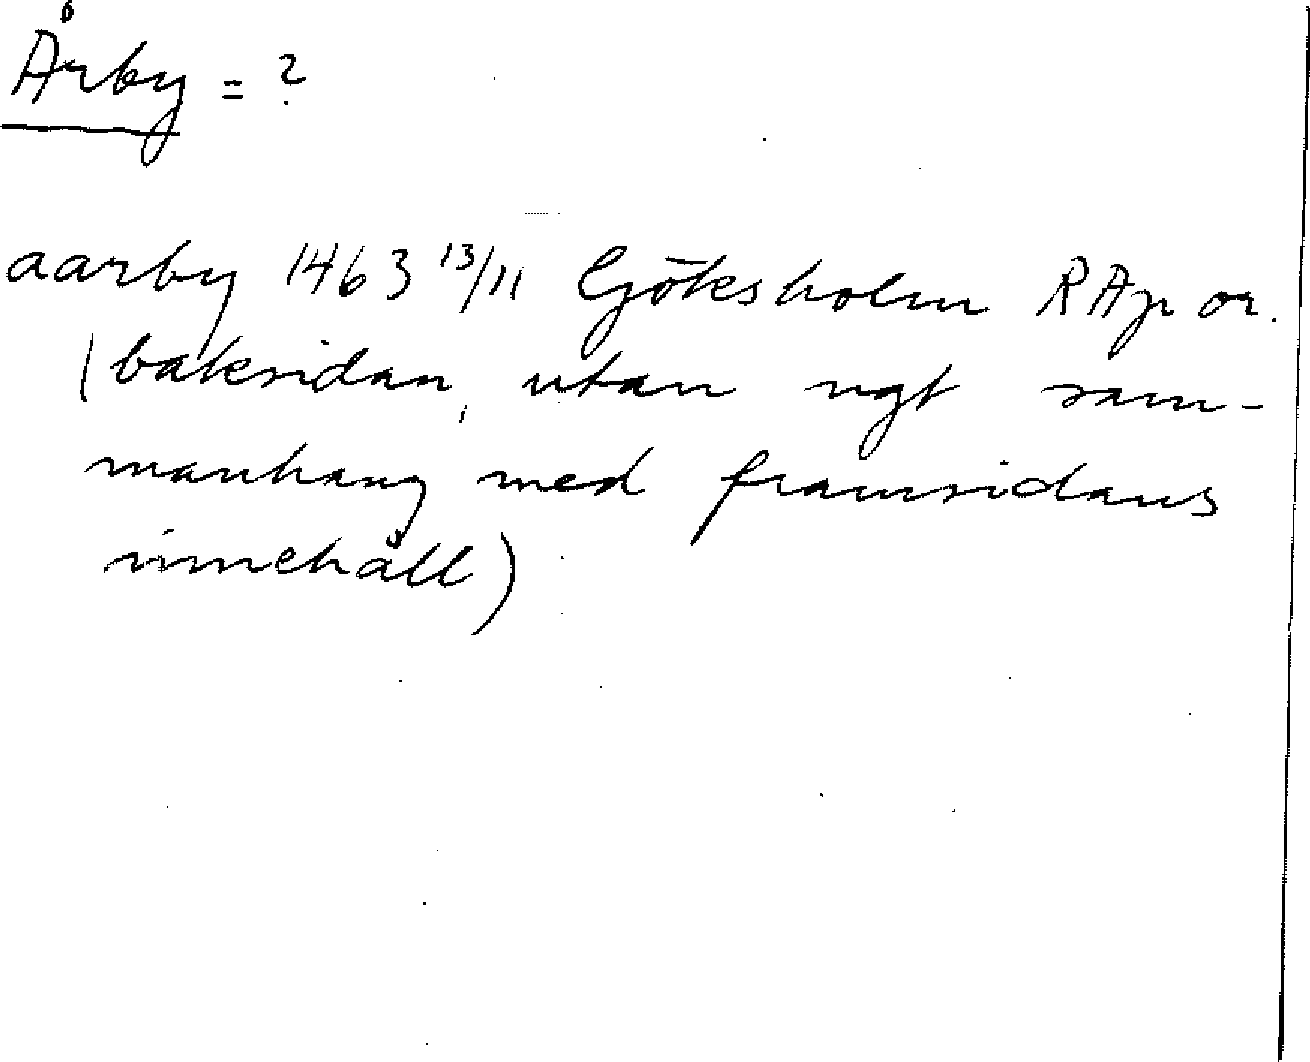 Årby = ?
aarby 1463 13/11 Göksholm RAp or.
(baksidan, utan ngt sam-
manhang med framsidans
innehåll)